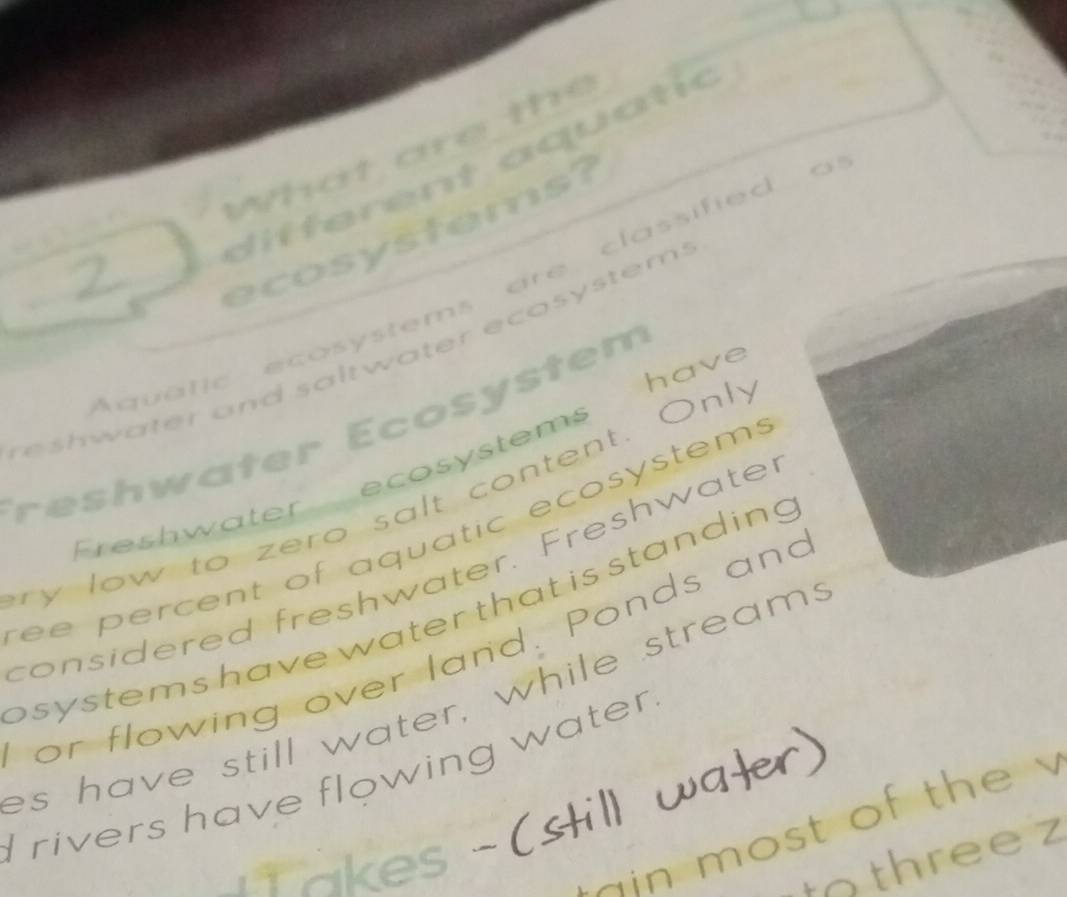 2
What are the
different aquatic
ecosystems?
Aquatic ecosystems are classified as
freshwater and saltwater ecosystems
Freshwater Ecosystem
Freshwater ecosystems have
ery low to zero salt content. Only
ree percent of aquatic ecosystems
considered freshwater. Freshwater
osystems have water that is standing
l or flowing over land. Ponds and
es have still water, while streams
d rivers have flowing water.
Lakes - (still water)
tain most of the w
to three z